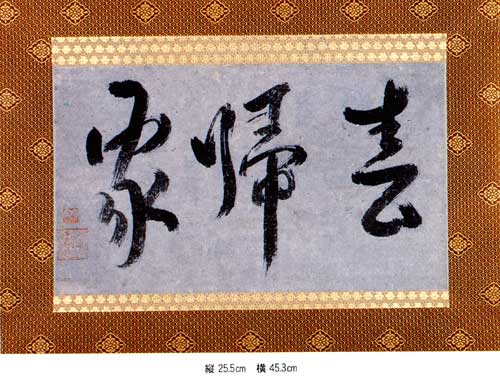 喜帰家
縦 25.5cm 横 45.3cm